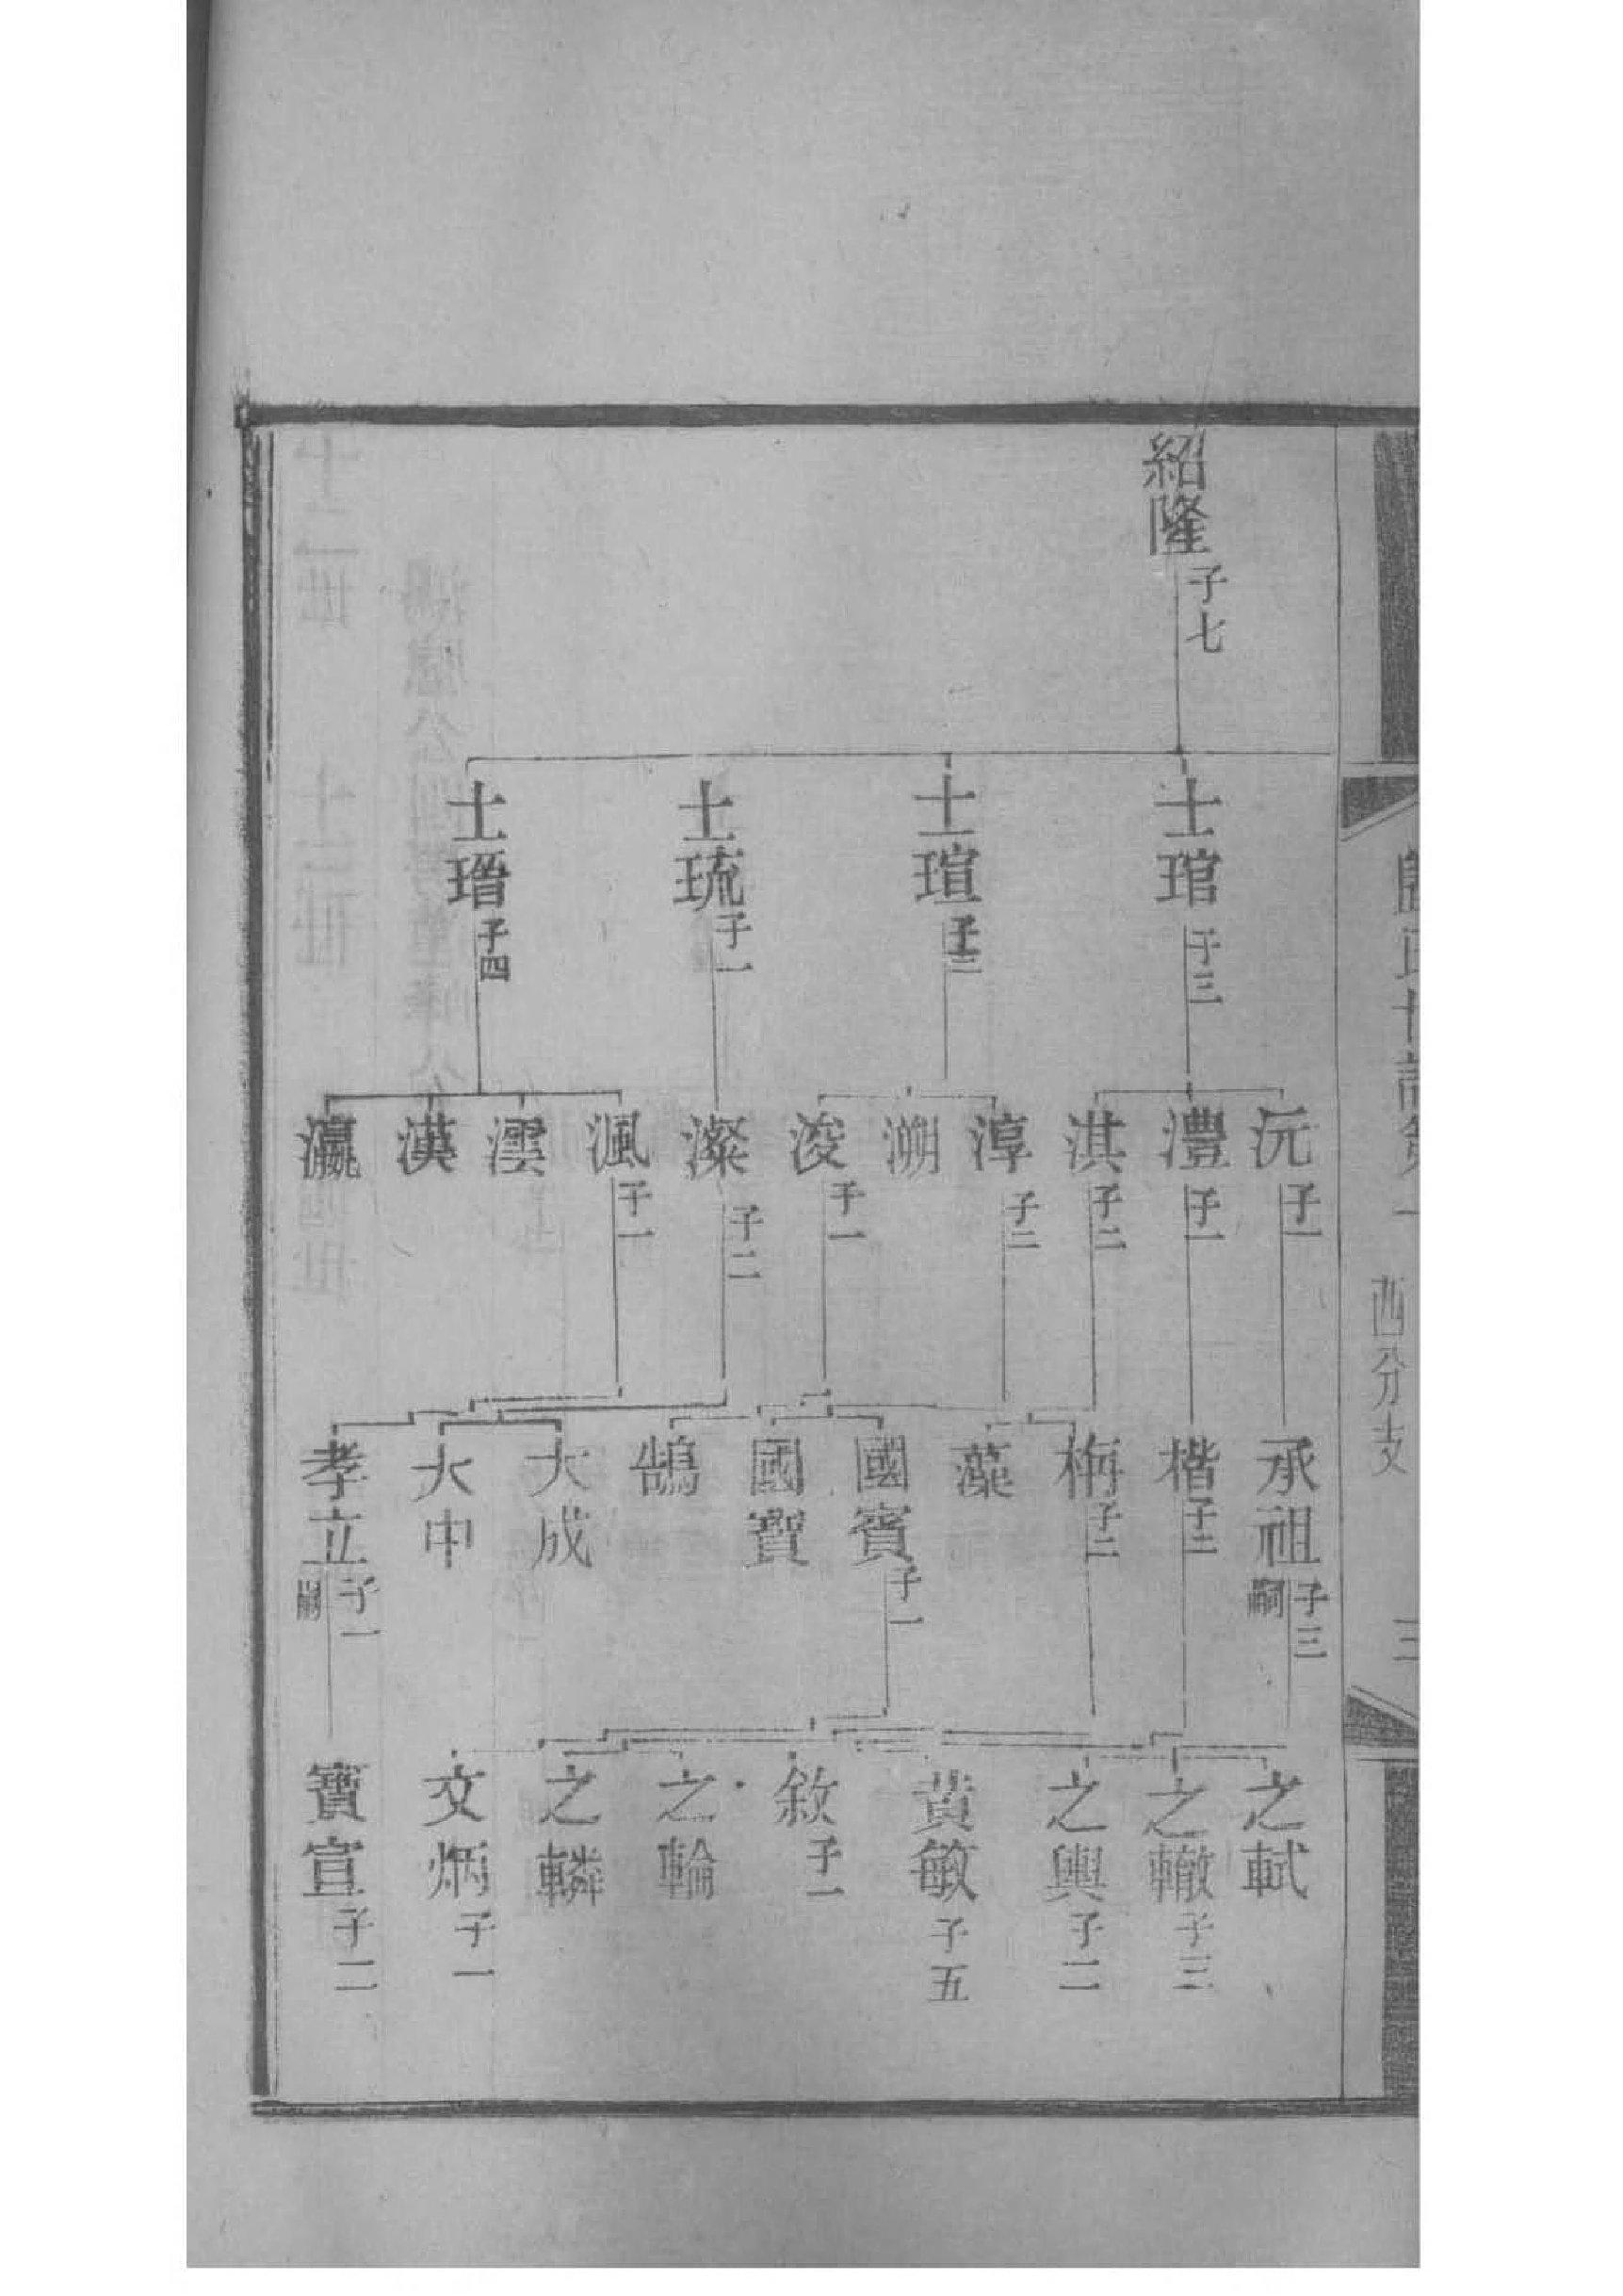 紹隆 子七
士琯 子三
士瑄 子三
士琉 子一
士瑨 子四
沅 子一
澧 子一
淇 子二
淳 子二
溯
浚 子一
澯 子二
渢 子一
澐
漢
瀛
承祖 子三 嗣
楷 子二
栴 子二
藻
國賓 子一
國寶
鵠
大成
大中
孝立 子一 嗣
之軾
之轍 子三
之輿 子二
黃敏 子五
敘 子一
之輪
之轔
文炳 子一
寶宣 子二
西分支
三